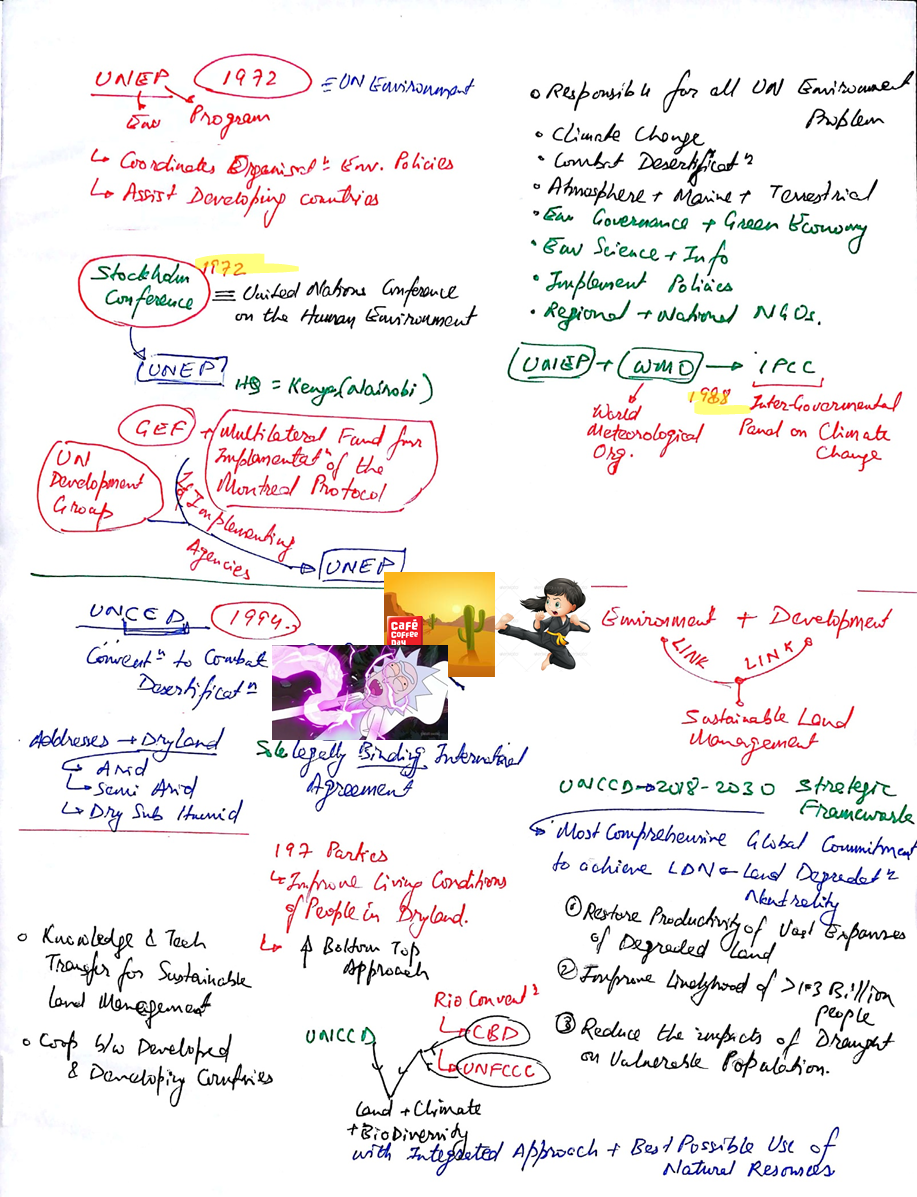 UNEP 1972 = UN Environment
Env Program
↳ Coordinates Organisatⁿ Env. Policies
↳ Assist Developing countries
Stockholm Conference 1972
≡ United Nations Conference
on the Human Environment
UNEP
HQ = Kenya (Nairobi)
GEF + Multilateral Fund for
Implementatⁿ of the
Montreal Protocol
UN
Development
Group
Implementing
Agencies
UNEP
o Responsible for all UN Environment
Problem
• Climate Change
• Combat Desertificatⁿ
• Atmosphere + Marine + Terrestrial
• Env Governance + Green Economy
• Env Science + Info
• Implement Policies
• Regional + National NGOs.
UNEP + WMO → IPCC
1988
World
Meteorological
Org.
Inter-Governmental
Panel on Climate
Change
UNCED 1994.
Conventⁿ to Combat
Desertificatⁿ
Café
Coffee
Day
Addresses → Dryland
↳ Arid
↳ Semi Arid
↳ Dry Sub Humid
Sole legally Binding International
Agreement
Environment + Development
LINK LINK
Sustainable Land
Management
UNCCD → 2018-2030 Strategic
Framework
Most Comprehensive Global Commitment
to achieve LDN - Land Degradatⁿ
Neutrality
① Restore Productivity of Vast Expanses
of Degraded Land
② Improve Livelyhood of >1.3 Billion
people
③ Reduce the impacts of Draught
on Vulnerable Population.
197 Parties
↳ Improve Living Conditions
of People in Dryland.
↳ ↑ Bottom Top
Approach
o Knowledge & Tech
Transfer for Sustainable
Land Management
o Coop b/w Developed
& Developing Countries
Rio Conventⁿ
UNCCD CBD
UNFCCC
Land + Climate
+ BioDiversity
with Integrated Approach + Best Possible Use of
Natural Resources